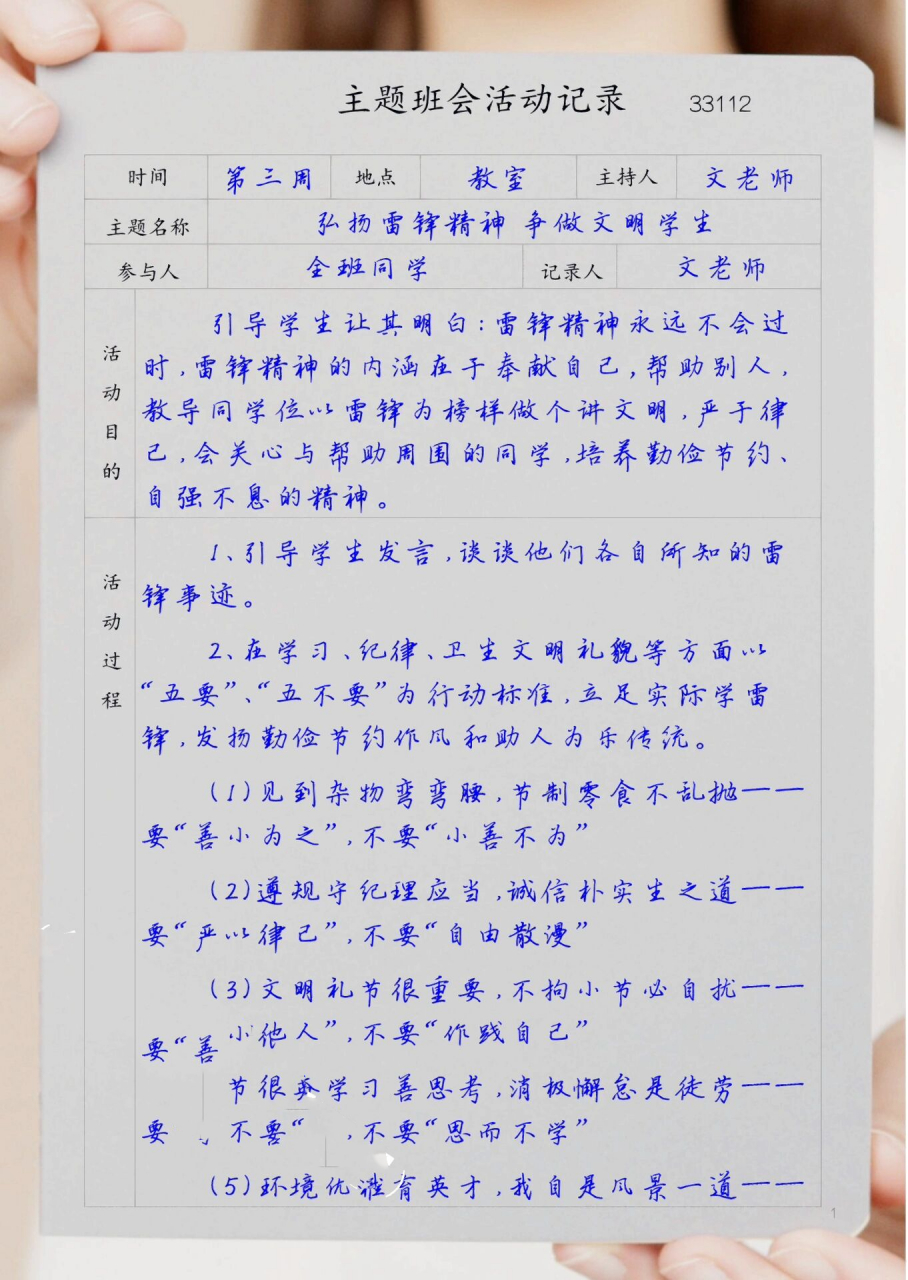 主题班会活动记录 33112
时间 第三周 地点 教室 主持人 文老师
主题名称 弘扬雷锋精神 争做文明学生
参与人 全班同学 记录人 文老师
活动目的
引导学生让其明白：雷锋精神永远不会过
时，雷锋精神的内涵在于奉献自己，帮助别人，
教导同学位以雷锋为榜样做个讲文明，严于律
己，会关心与帮助周围的同学，培养勤俭节约、
自强不息的精神。
活动过程
1、引导学生发言，谈谈他们各自所知的雷
锋事迹。
2、在学习、纪律、卫生文明礼貌等方面以
“五要”、“五不要”为行动标准，立足实际学雷
锋，发扬勤俭节约作风和助人为乐传统。
(1)见到杂物弯弯腰，节制零食不乱抛——
要“善小为之”，不要“小善不为”
(2)遵规守纪理应当，诚信朴实生之道——
要“严以律己”，不要“自由散漫”
(3)文明礼节很重要，不拘小节必自扰——
要“善 小他人”，不要“作践自己”
节很 学习善思考，消极懈怠是徒劳——
要 不要“ ，不要“思而不学”
(5)环境优 育英才，我自是风景一道——
1